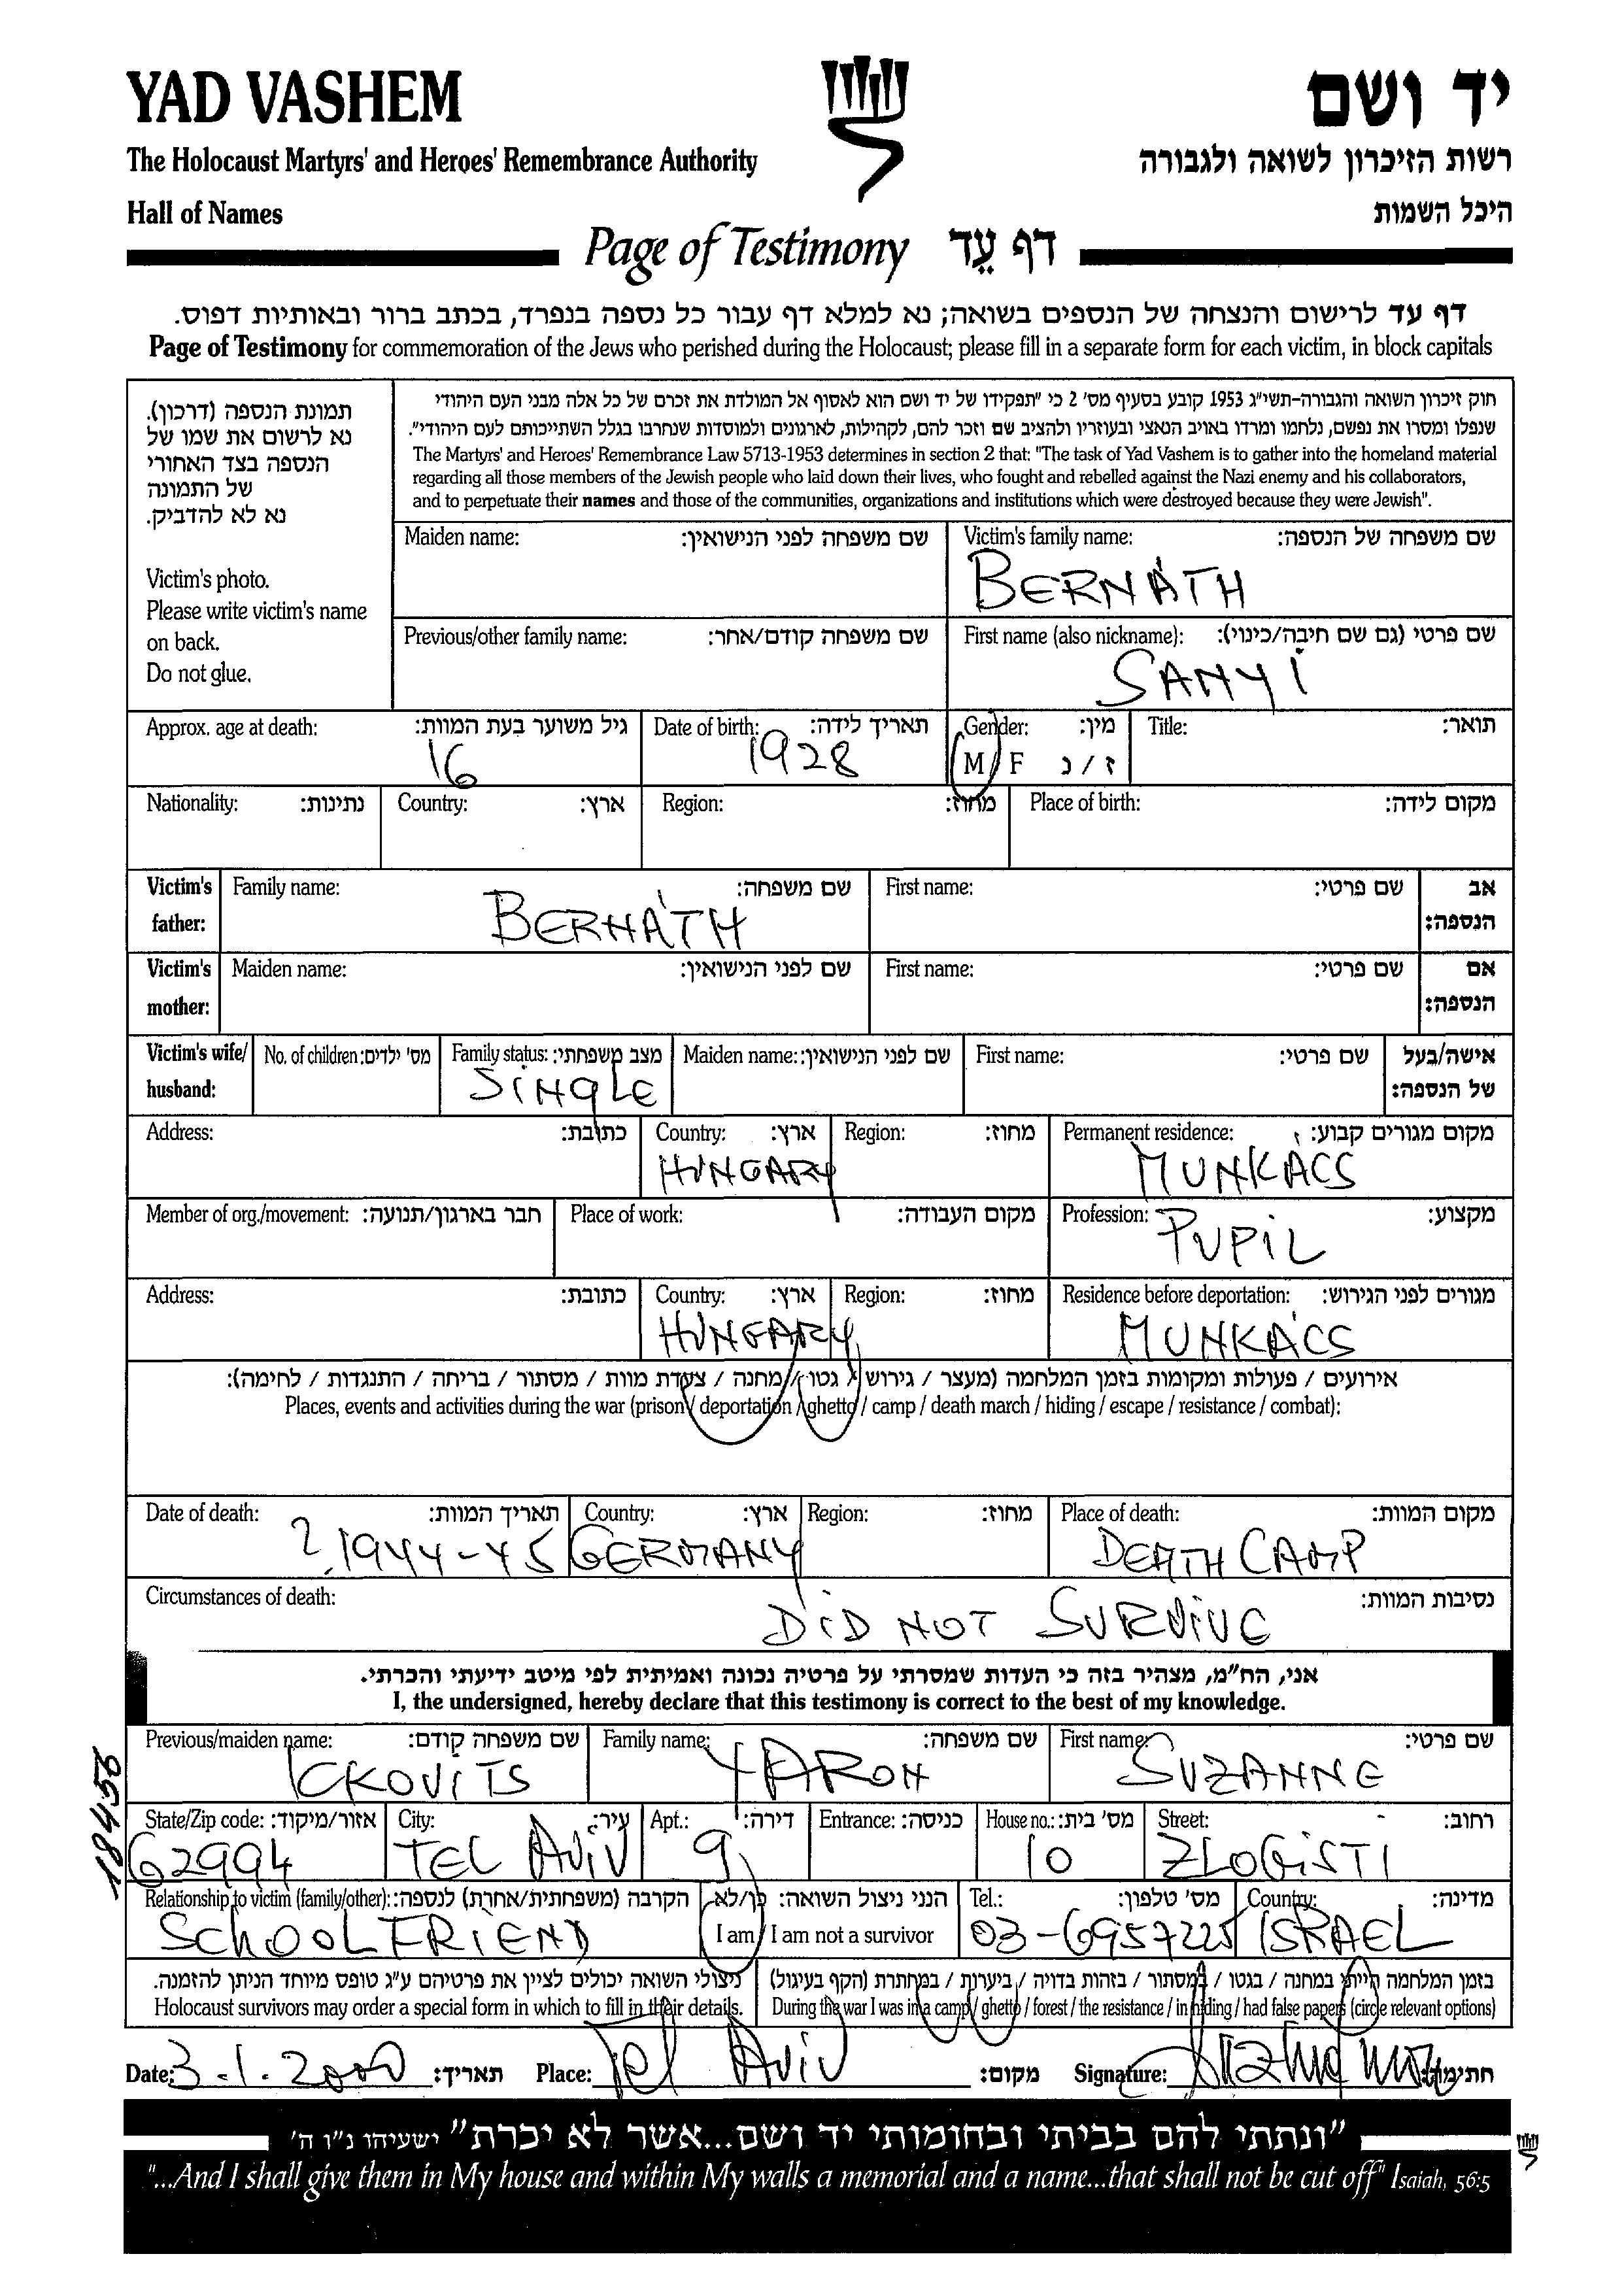 YAD VASHEM
יד ושם
The Holocaust Martyrs' and Heroes' Remembrance Authority
רשות הזיכרון לשואה ולגבורה
Hall of Names
היכל השמות
Page of Testimony דף עֵד
דף עד לרישום והנצחה של הנספים בשואה; נא למלא דף עבור כל נספה בנפרד, בכתב ברור ובאותיות דפוס.
Page of Testimony for commemoration of the Jews who perished during the Holocaust; please fill in a separate form for each victim, in block capitals
תמונת הנספה (דרכון).
נא לרשום את שמו של
הנספה בצד האחורי
של התמונה
נא לא להדביק.
Victim's photo.
Please write victim's name
on back.
Do not glue.
חוק זיכרון השואה והגבורה-תשי"ג 1953 קובע בסעיף מס' 2 כי "תפקידו של יד ושם הוא לאסוף אל המולדת את זכרם של כל אלה מבני העם היהודי
שנפלו ומסרו את נפשם, נלחמו ומרדו באויב הנאצי ובעוזריו ולהציב שם וזכר להם, לקהילות, לארגונים ולמוסדות שנחרבו בגלל השתייכותם לעם היהודי".
The Martyrs' and Heroes' Remembrance Law 5713-1953 determines in section 2 that: "The task of Yad Vashem is to gather into the homeland material
regarding all those members of the Jewish people who laid down their lives, who fought and rebelled against the Nazi enemy and his collaborators,
and to perpetuate their names and those of the communities, organizations and institutions which were destroyed because they were Jewish".
Maiden name: שם משפחה לפני הנישואין: Victim's family name: שם משפחה של הנספה:
BERNÁTH
Previous/other family name: שם משפחה קודם/אחר: First name (also nickname): שם פרטי (גם שם חיבה/כינוי):
SANYI
Approx. age at death: גיל משוער בעת המוות: Date of birth: תאריך לידה: Gender: מין: Title: תואר:
16 1928 M / F ז / נ
Nationality: נתינות: Country: ארץ: Region: מחוז: Place of birth: מקום לידה:
Victim's Family name: שם משפחה: First name: שם פרטי: אב
father: BERNÁTH הנספה:
Victim's Maiden name: שם לפני הנישואין: First name: שם פרטי: אם
mother: הנספה:
Victim's wife/ No. of children: מס' ילדים: Family status: מצב משפחתי: Maiden name: שם לפני הנישואין: First name: שם פרטי: אישה/בעל
husband: SiNgLE של הנספה:
Address: כתובת: Country: ארץ: Region: מחוז: Permanent residence: מקום מגורים קבוע:
HUNGARY MUNKÁCS
Member of org./movement: חבר בארגון/תנועה: Place of work: מקום העבודה: Profession: מקצוע:
PUPiL
Address: כתובת: Country: ארץ: Region: מחוז: Residence before deportation: מגורים לפני הגירוש:
HUNGARY MUNKÁCS
אירועים / פעולות ומקומות בזמן המלחמה (מעצר / גירוש / גטו / מחנה / צעדת מוות / מסתור / בריחה / התנגדות / לחימה):
Places, events and activities during the war (prison / deportation / ghetto / camp / death march / hiding / escape / resistance / combat):
Date of death: תאריך המוות: Country: ארץ: Region: מחוז: Place of death: מקום המוות:
? 1944-45 GERMANY DEATH CAMP
Circumstances of death: נסיבות המוות:
DiD NOT SURVIVE
אני, הח"מ, מצהיר בזה כי העדות שמסרתי על פרטיה נכונה ואמיתית לפי מיטב ידיעתי והכרתי.
I, the undersigned, hereby declare that this testimony is correct to the best of my knowledge.
Previous/maiden name: שם משפחה קודם: Family name: שם משפחה: First name: שם פרטי:
ICKOVITS YARON SUZANNE
18456
State/Zip code: אזור/מיקוד: City: עיר: Apt.: דירה: Entrance: כניסה: House no.: מס' בית: Street: רחוב:
62994 TEL AViV 9 10 ZLOGiSTI
Relationship to victim (family/other): הקרבה (משפחתית/אחרת) לנספה: הנני ניצול השואה: כן/לא Tel.: מס' טלפון: Country: מדינה:
SCHOOL FRiEND I am / I am not a survivor 03-6957225 ISRAEL
ניצולי השואה יכולים לציין את פרטיהם ע"ג טופס מיוחד הניתן להזמנה. בזמן המלחמה הייתי במחנה / בגטו / במסתור / בזהות בדויה / ביערות / במחתרת (הקף בעיגול)
Holocaust survivors may order a special form in which to fill in their details. During the war I was in a camp / ghetto / forest / the resistance / in hiding / had false papers (circle relevant options)
Date: 3.1.2000 תאריך: Place: Tel AViV מקום: Signature: חתימה:
"ונתתי להם בביתי ובחומותי יד ושם...אשר לא יכרת" ישעיהו נ"ו ה'
"...And I shall give them in My house and within My walls a memorial and a name...that shall not be cut off" Isaiah, 56:5